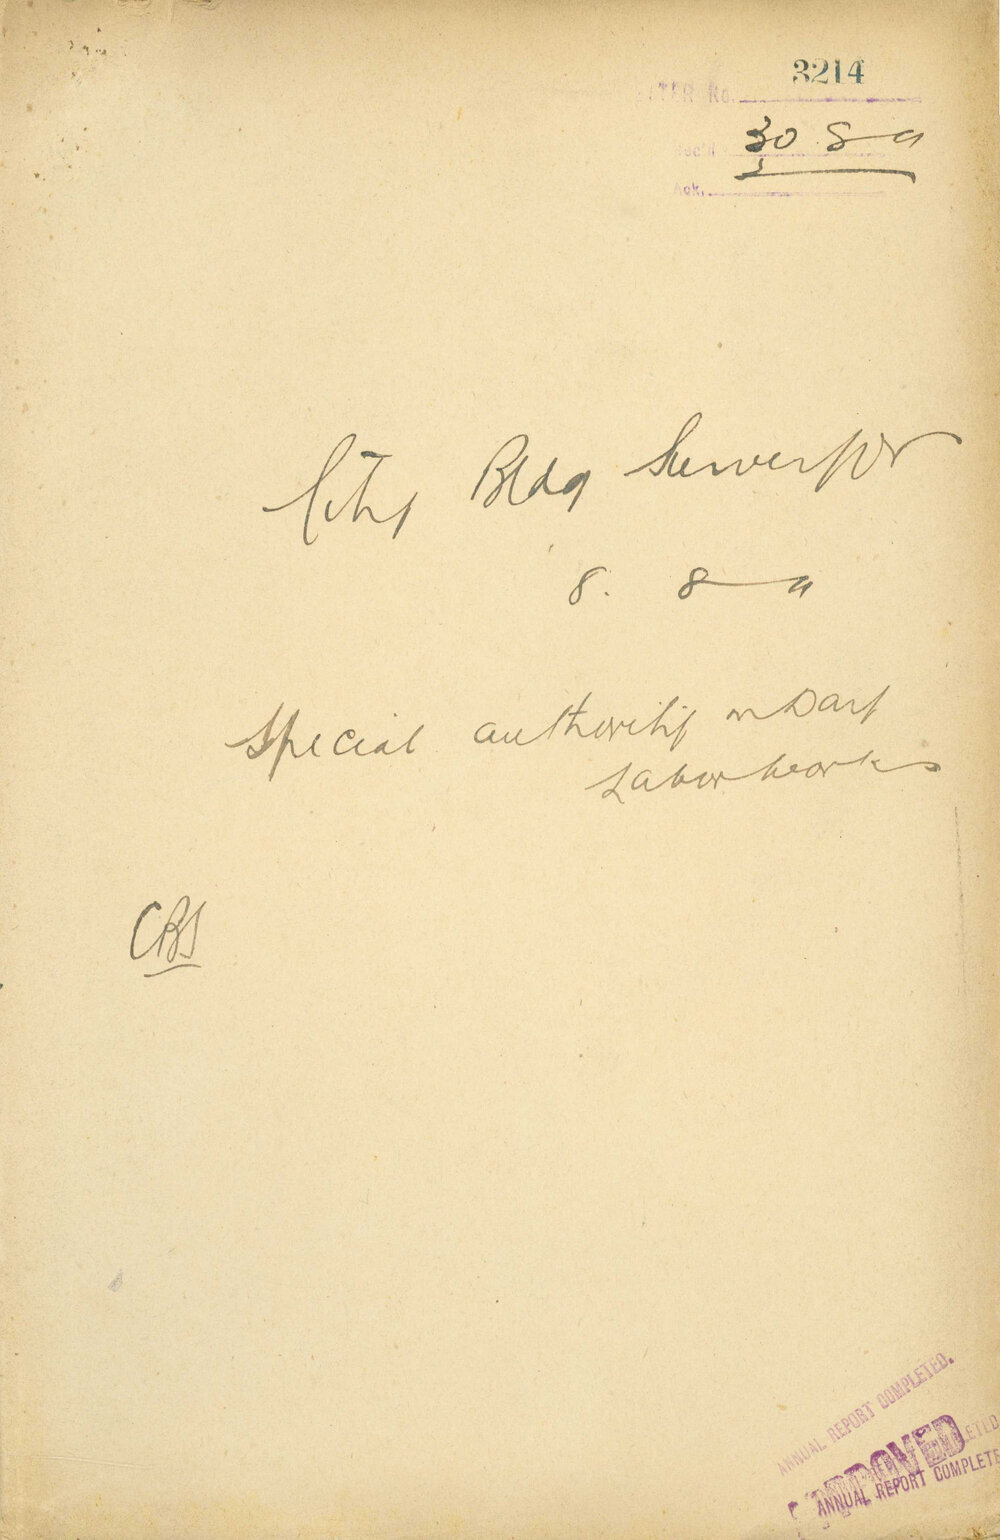 3214
LETTER No.
Rec'd 30 8
Ack.
City Bldg Surveyor
8. 8
Special authority on Day
Labor works
CBS
ANNUAL REPORT COMPLETED.
APPROVED
ANNUAL REPORT COMPLETE